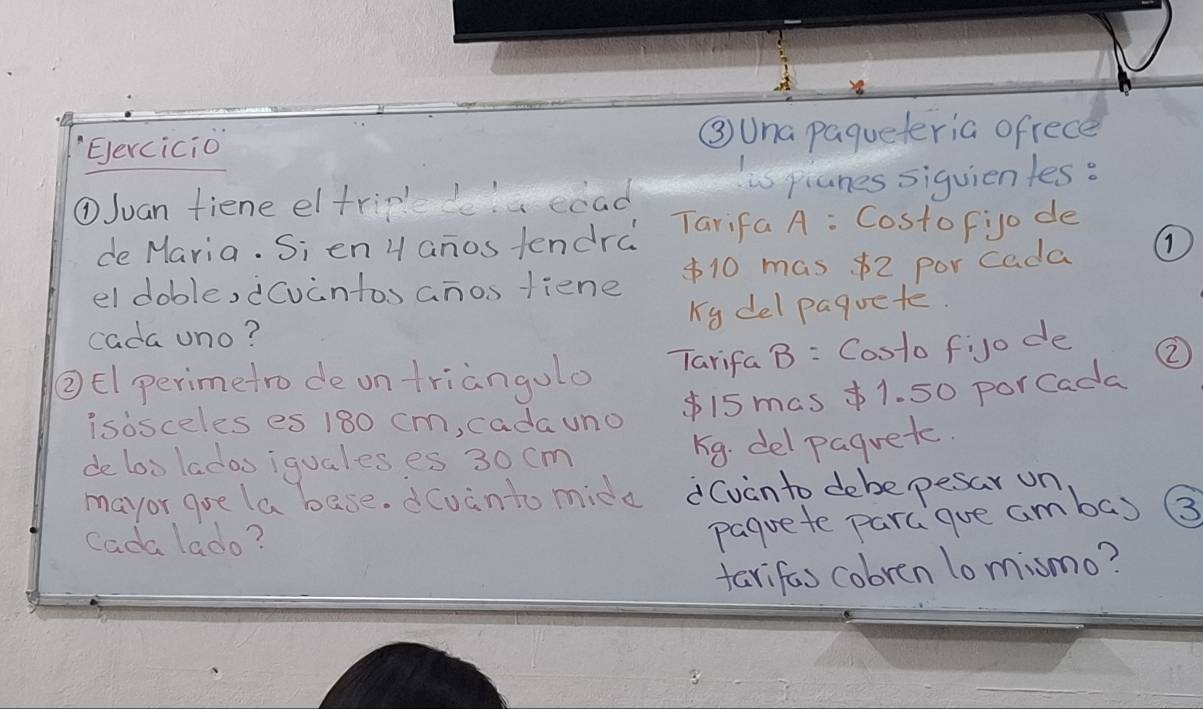 "Ejercicio"
① Juan tiene el triple de la edad
de Maria. Si en 4 años tendrá
el doble, ¿cuántos años tiene
cada uno?
② El perimetro de un triángulo
isósceles es 180 cm, cada uno
de los lados iguales es 30 cm
mayor que la base. ¿Cuánto mide
cada lado?
③ Una paqueteria ofrece
los planes siguientes:
Tarifa A: Costo fijo de
$10 mas $2 por cada
Kg del paquete.
Tarifa B: Costo fijo de
$15 mas $1.50 por cada
Kg. del paquete.
¿Cuánto debe pesar un
paquete para que ambas
tarifas cobren lo mismo?
①
②
③